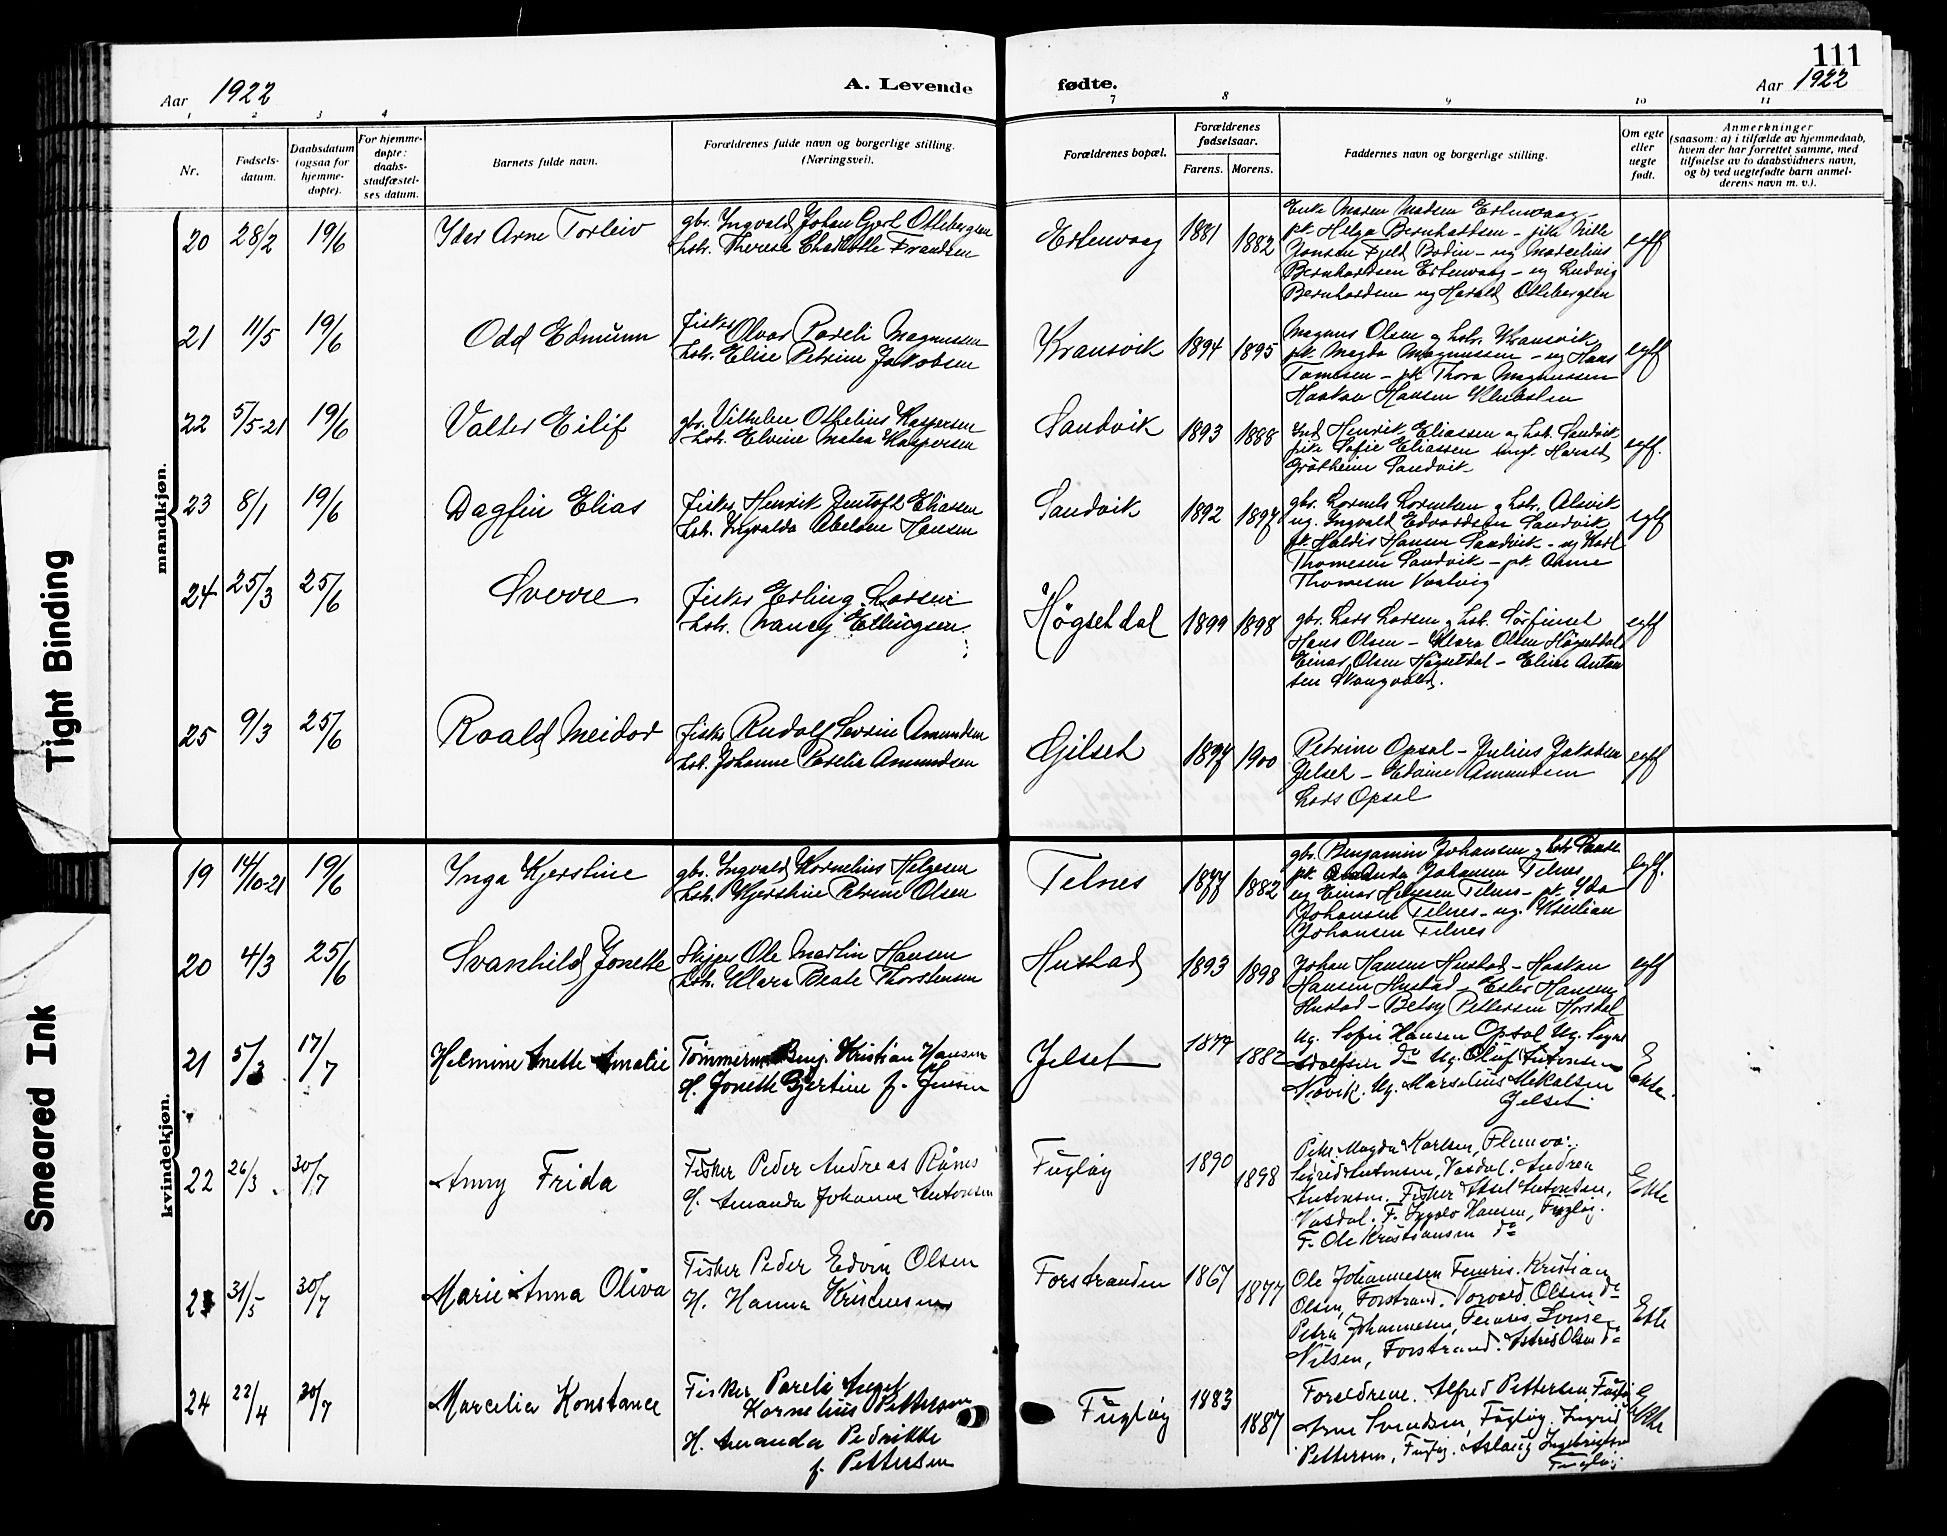 111
Aar 1922
A. Levende fødte.
Aar 1922
1 2 3 4 7 8 9 10 11
Nr.
Fødsels-
datum.
Daabsdatum
(ogsaa for
hjemme-
døpte).
For hjemme-
døpte:
daabs-
stadfæstel-
ses datum.
Barnets fulde navn.
Forældrenes fulde navn og borgerlige stilling.
(Næringsvei).
Forældrenes bopæl.
Forældrenes
fødselsaar.
Farens. Morens.
Faddernes navn og borgerlige stilling.
Om egte
eller
uegte
født.
Anmerkninger
(saasom: a) i tilfælde av hjemmedaab,
hvem der har forrettet samme, med
tilføielse av to daabsvidners navn,
og b) ved uegtefødte barn anmel-
derens navn m. v.).
mandkjøn.
20 28/2 19/6 Arne Torleiv
gbr. Ingvald Johan Ottebergsen
hstr. Therese Charlotte Frandsen
1881 1882
Enke Maren Madsen
pk. Helga Bernhardsen
Jonsen Fjeld Bodin - ug Marcelius
Bernhardsen - ug Ludvig
Bernhardsen ug Harald Ottebergsen
egtf
21 11/5 19/6 Odd Edmunn
fisker Olvar Pareli Magnussen
hstr. Elise Petrine Jakobsen
Kransvik 1894 1895
Magnus Olsen og hstr. Kransvik
pk. Magda Magnussen - ug Hans
Tomesen - pk Thora Magnussen
Haakon Hansen
egtf
22 5/5-21 19/6 Valter Eilif
gbr. Vilhelm Othelius Kaspersen
hstr. Elvine Matea Kaspersen
Sandvik 1893 1888
Henrik Eliassen og hstr. Sandvik
Sofie Eliassen ungk. Harald
Grötheim Sandvik
egtf.
23 8/1 19/6 Dagfin Elias
fisker Henrik Jentoft Eliassen
hstr. Ingvalda Hansen
Sandvik 1892 1897
gbr. Lornts Lorntsen og hstr. Alsvik
ug. Ingvald Edvardsen Sandvik
pk. Haldis Hansen Sandvik - ug Karl
Thomesen Sandvik - pk. Anne
Thomesen
egtf
24 25/3 25/6 Sverre
fisker Erling Larsen
hstr. Nancy Ellingsen
Högsetdal 1899 1898
gbr. Lars Larsen og hstr. Sörfinset
Hans Olsen - Klara Olsen Högsetdal
Einar Olsen Högsetdal - Eline Anton
sen Skaugvold.
egtf
25 9/3 25/6 Roald Meidor
fisker Rudolf Severin Amundsen
hstr. Johanne Parelie Amundsen
Gjilset 1897 1900
Petrine Opsal - Julius Jakobsen
Jelset - Edvine Amundsen
Lars Opsal
egtf
kvindekjøn.
19 14/10-21 19/6 Inga Kjerstine
gbr. Ingvald Kornelius Helgesen
hstr. Kjerstine Petrine Olsen
Telnes 1877 1882
gbr. Benjamin Johansen og hstr
pk. Johansen Telnes
ug Einar Helgesen Telnes - pk. Ida
Johansen Telnes - ug. Kristian
Johansen Telnes
egtf.
20 4/3 25/6 Svanhild Jonette
Skipper Ole Martin Hansen
hstr. Klara Beate Thorstensen
Hustad 1893 1898
Johan Hansen Hustad - Haakon
Hansen Hustad - Ester Hansen
Hustad - Betsy Pettersen
egtf
21 5/3 17/7 Helmine Anette Amalie
Tømmerm. Benj. Kristian Hansen
H. Jonette Bertine f. Jensen
Jelset 1877 1882
Ug. Sofie Hansen Opsal Ug. Signe
Adolfsen do Ug. Oluf Antonsen
Novik. Ug. Marselius Mikalsen
Jelset
Ekte.
22 26/3 30/7 Anny Frida
Fisker Peder Andreas Rånes
H. Amanda Johanne Antonsen
Fugløy 1890 1898
Pike Magda Karlsen,
Sigrid Antonsen, Vasdal. Andrea
Antonsen. Fisker Aksel Antonsen,
Vasdal. F. Hansen, Fugløy.
F. Ole Kristiansen do
Ekte
23 31/5 30/7 Marie Anna Oliva
Fisker Peder Edvin Olsen
H. Hanna Kristensen
Forstranden 1867 1877
Ole Johannesen Femris. Kristian
Olsen, Forstrand. Torvald Olsen do
Petra Johannesen, Femris. Lovise
Nilsen, Forstrand. Astrid Olsen do
Ekte
24 22/4 30/7 Marcelia Konstance
Fisker Pareli Aksel
Kornelius Pettersen
H. Amanda Pedrikke
f. Pettersen
Fugløy 1883 1887
Foreldrene. Alfred Pettersen, Fugløy
Arne Svendsen, Fugløy. Ingrid
Pettersen, Fugløy. Aslaug Ingebrigtsen
Fugløy
Ekte
Tight Binding
Smeared Ink